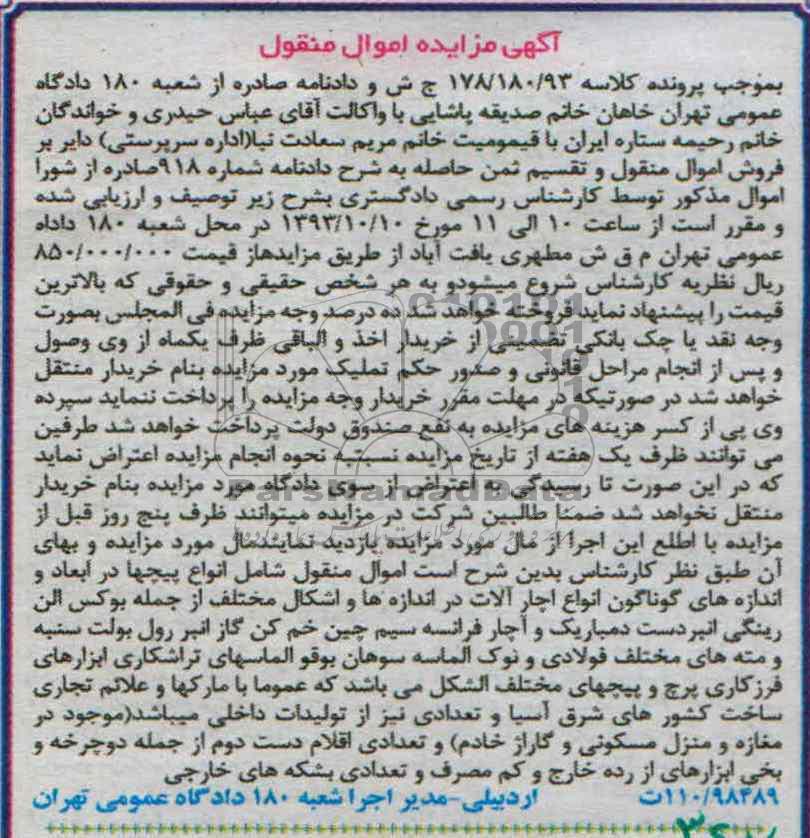 آگهی مزایده اموال منقول
بموجب پرونده کلاسه ۱۷۸/۱۸۰/۹۳ ج ش و دادنامه صادره از شعبه ۱۸۰ دادگاه
عمومی تهران خاهان خانم صدیقه پاشایی با واکالت آقای عباس حیدری و خواندگان
خانم رحیمه ستاره ایران با قیمومیت خانم مریم سعادت نیا(اداره سرپرستی) دایر بر
فروش اموال منقول و تقسیم ثمن حاصله به شرح دادنامه شماره ۹۱۸صادره از شورا
اموال مذکور توسط کارشناس رسمی دادگستری بشرح زیر توصیف و ارزیابی شده
و مقرر است از ساعت ۱۰ الی ۱۱ مورخ ۱۳۹۳/۱۰/۱۰ در محل شعبه ۱۸۰ داداه
عمومی تهران م ق ش مطهری یافت آباد از طریق مزایدهاز قیمت ۸۵۰/۰۰۰/۰۰۰
ریال نظریه کارشناس شروع میشودو به هر شخص حقیقی و حقوقی که بالاترین
قیمت را پیشنهاد نماید فروخته خواهد شد ده درصد وجه مزایده فی المجلس بصورت
وجه نقد یا چک بانکی تضمینی از خریدار اخذ و الباقی ظرف یکماه از وی وصول
و پس از انجام مراحل قانونی و صدور حکم تملیک مورد مزایده بنام خریدار منتقل
خواهد شد در صورتیکه در مهلت مقرر خریدار وجه مزایده را پرداخت ننماید سپرده
وی پی از کسر هزینه های مزایده به نفع صندوق دولت پرداخت خواهد شد طرفین
می توانند ظرف یک هفته از تاریخ مزایده نسبتبه نحوه انجام مزایده اعتراض نماید
که در این صورت تا رسیدگی به اعتراض از سوی دادگاه مورد مزایده بنام خریدار
منتقل نخواهد شد ضمنا طالبین شرکت در مزایده میتوانند ظرف پنج روز قبل از
مزایده با اطلع این اجرا از مال مورد مزایده بازدید نمایندمال مورد مزایده و بهای
آن طبق نظر کارشناس بدین شرح است اموال منقول شامل انواع پیچها در ابعاد و
اندازه های گوناگون انواع اچار آلات در اندازه ها و اشکال مختلف از جمله بوکس الن
رینگی انبردست دمباریک و آچار فرانسه سیم چین خم کن گاز انبر رول بولت سنبه
و مته های مختلف فولادی و نوک الماسه سوهان بوقو الماسهای تراشکاری ابزارهای
فرزکاری پرچ و پیچهای مختلف الشکل می باشد که عموما با مارکها و علائم تجاری
ساخت کشور های شرق آسیا و تعدادی نیز از تولیدات داخلی میباشد(موجود در
مغازه و منزل مسکونی و گاراژ خادم) و تعدادی اقلام دست دوم از جمله دوچرخه و
بخی ابزارهای از رده خارج و کم مصرف و تعدادی بشکه های خارجی
۱۱۰/۹۸۴۸۹ت اردبیلی-مدیر اجرا شعبه ۱۸۰ دادگاه عمومی تهران
ParsNamadData